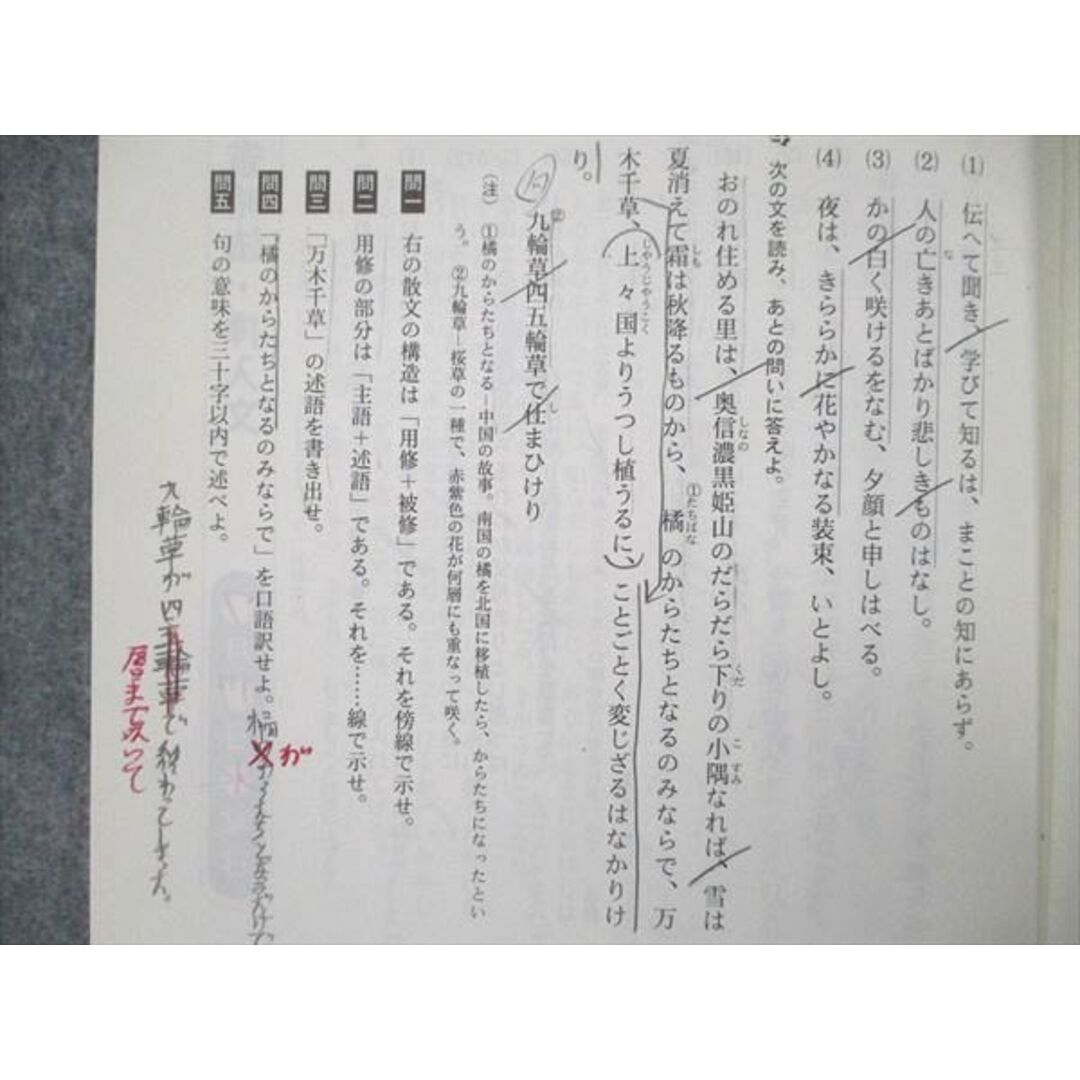 (1) 伝へて聞き、学びて知るは、まことの知にあらず。
(2) 人の亡きあとばかり悲しきものはなし。
(3) かの白く咲けるをなむ、夕顔と申しはべる。
(4) 夜は、きららかに花やかなる装束、いとよし。
次の文を読み、あとの問いに答えよ。
おのれ住める里は、奥信濃黒姫山のだらだら下りの小隅なれば、雪は
夏消えて霜は秋降るものから、①橘のからたちとなるのみならで、万
木千草、上々国よりうつし植うるに、ことごとく変じざるはなかりけ
り。
句
②九輪草四五輪草で仕まひけり
(注) ①橘のからたちとなる―中国の故事。南国の橘を北国に移植したら、からたちになったとい
う。 ②九輪草―桜草の一種で、赤紫色の花が何層にも重なって咲く。
問一 右の散文の構造は「用修+被修」である。それを傍線で示せ。
問二 用修の部分は「主語+述語」である。それを……線で示せ。
問三 「万木千草」の述語を書き出せ。
問四 「橘のからたちとなるのみならで」を口語訳せよ。
が
問五 句の意味を三十字以内で述べよ。
九輪草が四五輪草で終わってしまった。
層まで咲いて